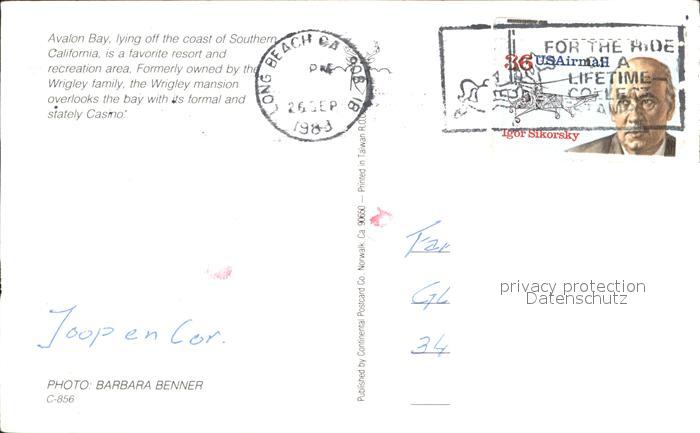 Avalon Bay, lying off the coast of Southern
California, is a favorite resort and
recreation area. Formerly owned by the
Wrigley family, the Wrigley mansion
overlooks the bay with its formal and
stately Casino.
LONG BEACH CA 908
PM
26 SEP
FOR THE RIDE
OF A
LIFETIME—
COLLECT
STAMPS
36 USAirmail
Igor Sikorsky
Published by Continental Postcard Co. Norwalk, Ca. 90650 — Printed in Taiwan R.O.C.
Far
GL
34
privacy protection
Datenschutz
Joop en Cor.
PHOTO: BARBARA BENNER
C-856